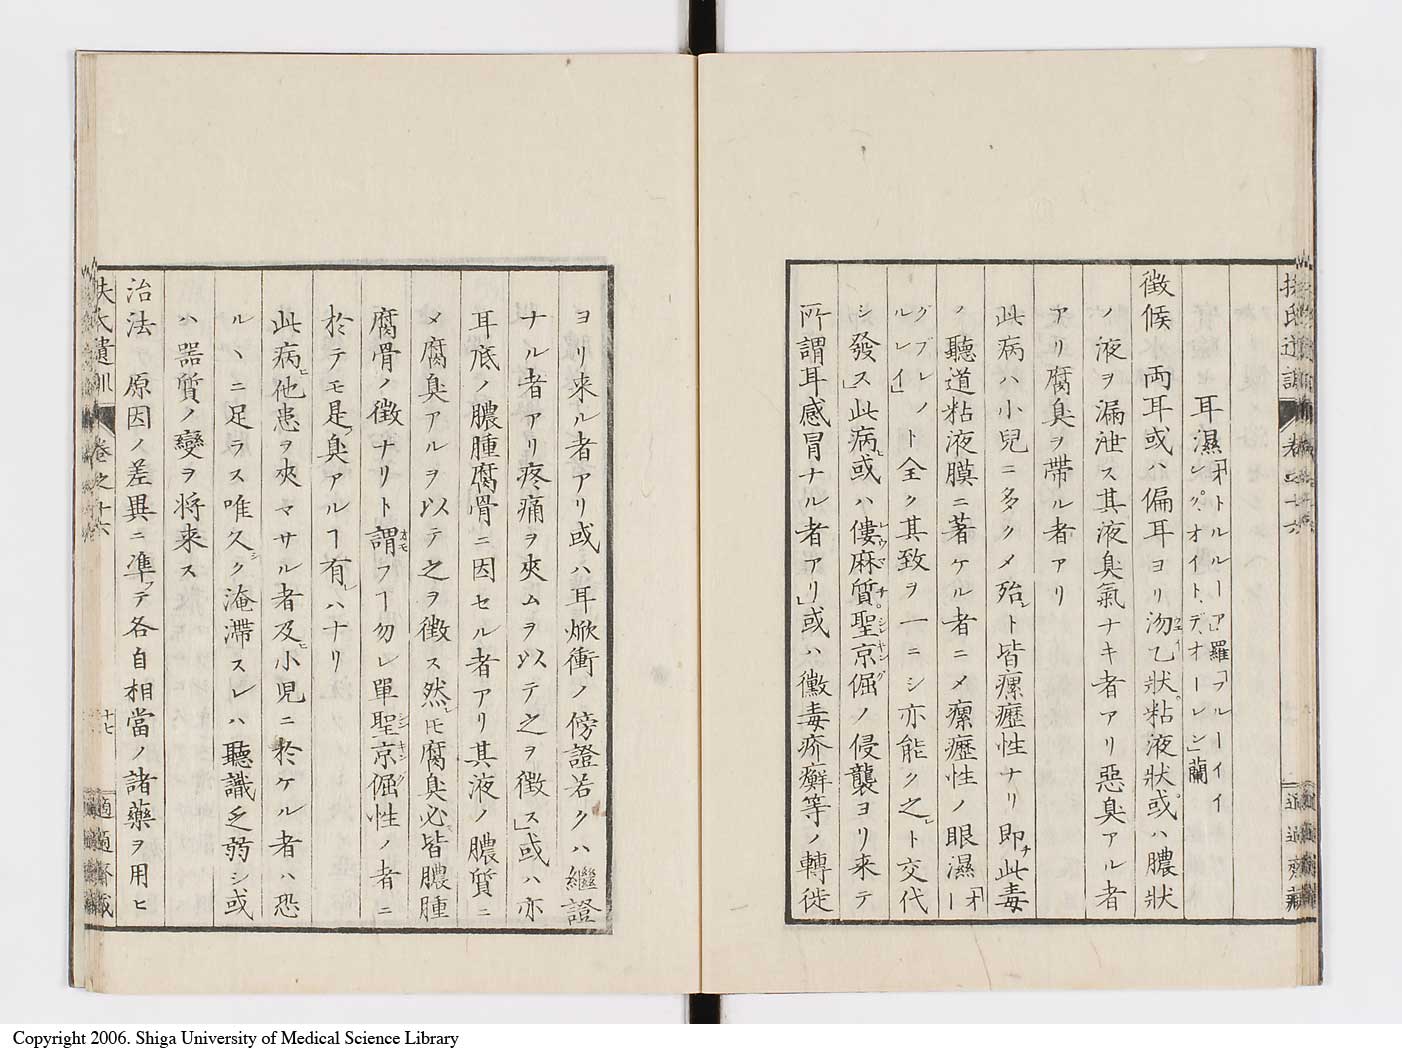 耳濕「オトルルーア」羅「フルーイイ
レング、オイト、デ、オーレン」蘭
徴候 両耳或ハ偏耳ヨリ沕乙状粘液状或ハ膿状
ノ液ヲ漏泄ス其液臭氣ナキ者アリ惡臭アル者
アリ腐臭ヲ帶ル者アリ
此病ハ小兒ニ多クメ殆ト皆瘰癧性ナリ即此毒
ノ聽道粘液膜ニ著ケル者ニメ瘰癧性ノ眼濕「オー
グブレノ
ルレイ」ト全ク其致ヲ一ニシ亦能ク之ト交代
シ發ス」此病或ハ僂麻質聖京倔ノ侵襲ヨリ来テ
所謂耳感冒ナル者アリ」或ハ黴毒疥癬等ノ轉徙
ヨリ来ル者アリ或ハ耳焮衝ノ傍證若クハ繼證
ナル者アリ疼痛ヲ夾ムヲ以テ之ヲ徴ス」或ハ亦
耳底ノ膿腫腐骨ニ因セル者アリ其液ノ膿質ニ
メ腐臭アルヲ以テ之ヲ徴ス然𪜈腐臭必皆膿腫
腐骨ノ徴ナリト謂フヿ勿レ單聖京倔性ノ者ニ
於テモ是臭アルヿ有ハナリ
此病他患ヲ夾マサル者及小児ニ於ケル者ハ恐
ルヽニ足ラス唯久ク淹滯スレハ聽識乏弱シ或
ハ器質ノ變ヲ将来ス
治法 原因ノ差異ニ準テ各自相當ノ諸藥ヲ用ヒ
扶氏遺訓 卷之十六 十七 適適齋藏
Copyright 2006. Shiga University of Medical Science Library